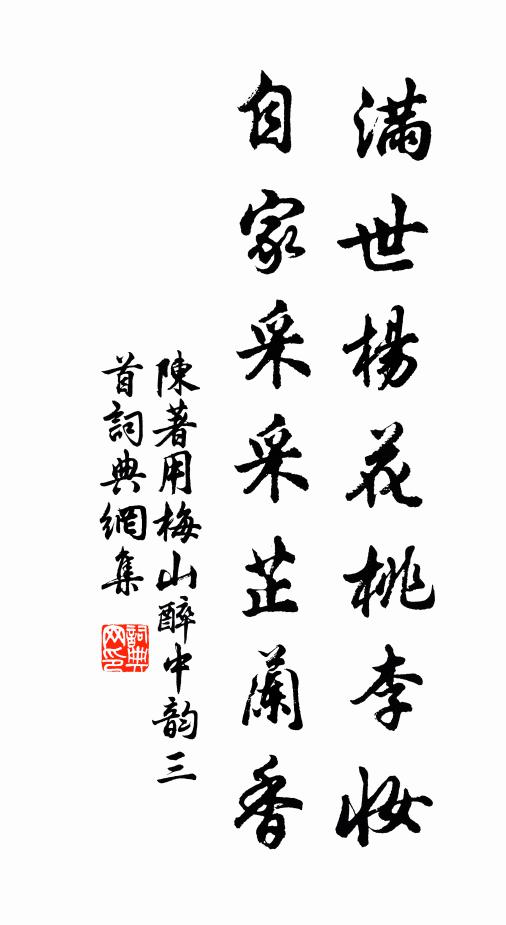 滿世楊花桃李妝
自家采采芷蘭香
陳著用梅山醉中韵三
首詞典網集
詞典網印